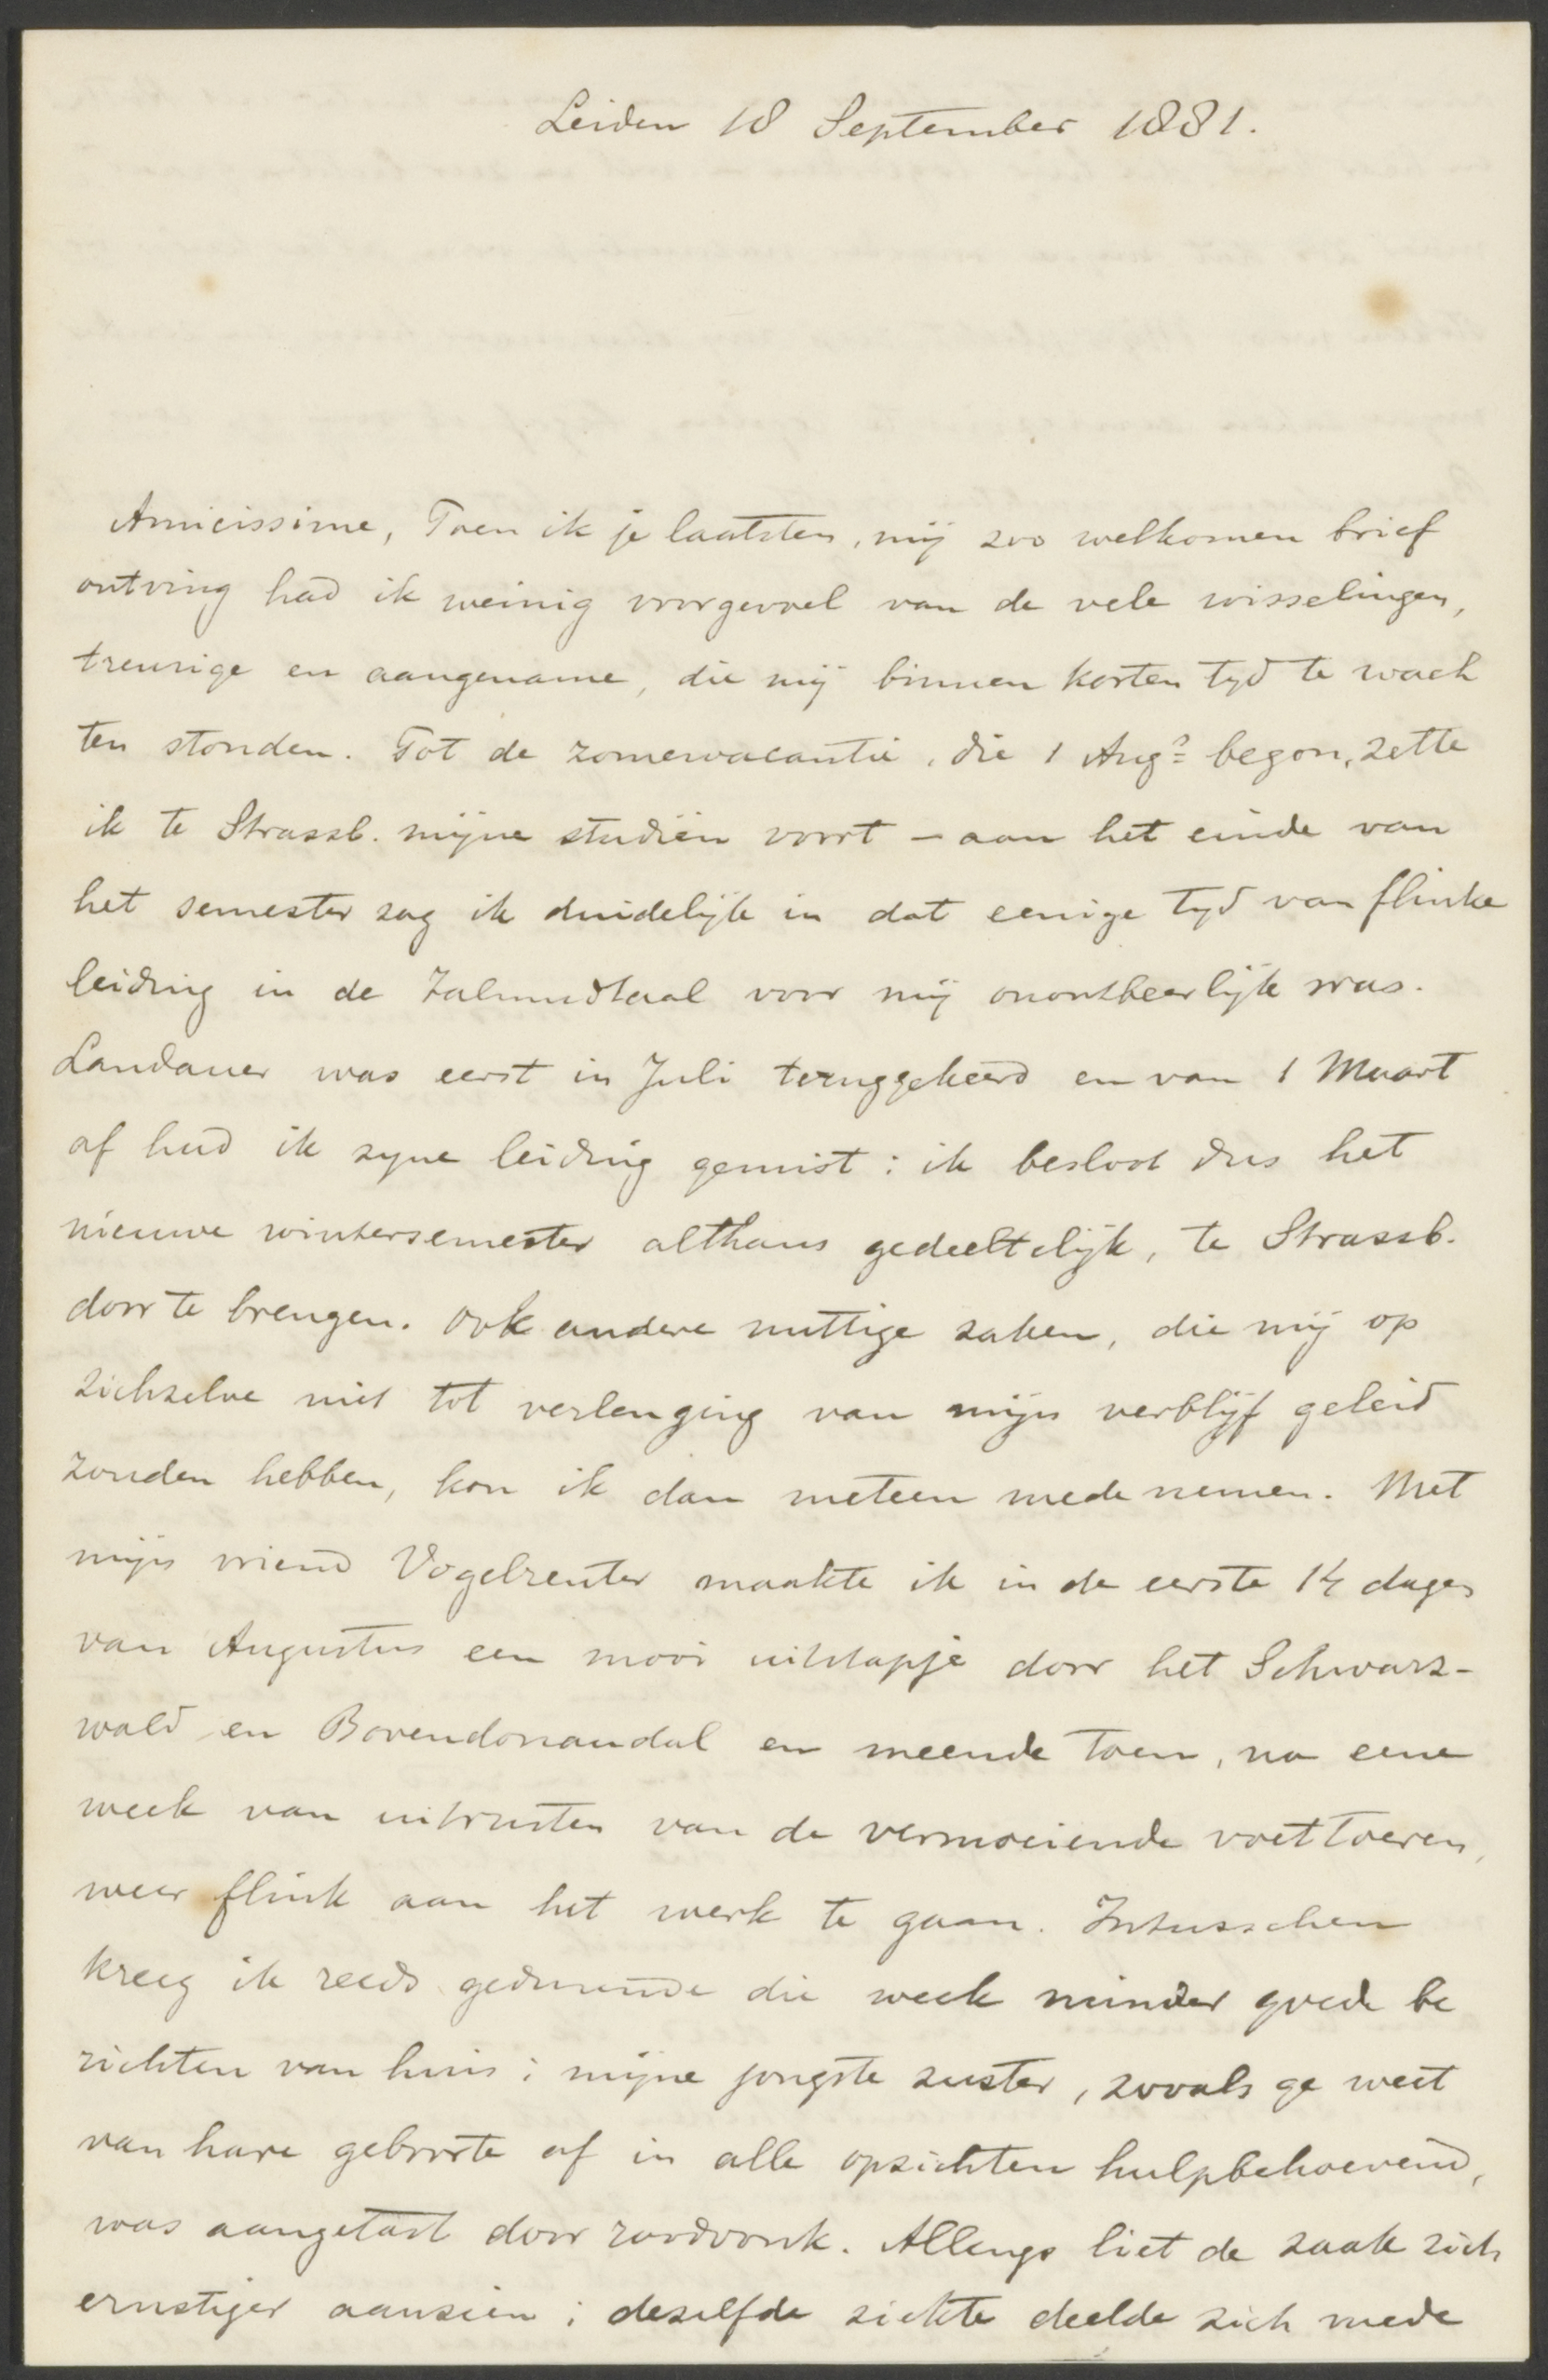 Leiden 18 September 1881.
Amicissime, Toen ik je laatsten, mij zoo welkomen brief
ontving had ik weinig voorgevoel van de vele wisselingen,
treurige en aangename, die mij binnen korten tyd te wach
ten stonden. Tot de zomervacantie, die 1 Augs begon, zette
ik te Strassb. mijne studiën voort - aan het einde van
het semester zag ik duidelijk in dat eenige tyd van flinke
leiding in de Talmudtaal voor mij onontbeerlijk was.
Landauer was eerst in Juli teruggekeerd en van 1 Maart
af had ik zyne leiding gemist: ik besloot dus het
nieuwe wintersemester althans gedeeltelijk, te Strassb.
door te brengen. Ook andere nuttige zaken, die mij op
zichzelve niet tot verlenging van mijn verblijf geleid
zouden hebben, kon ik dan meteen mede nemen. Met
mijn vriend Vogelreuter maakte ik in de eerste 14 dagen
van Augustus een mooi uitstapje door het Schwarz-
wald en Bovendonaudal en meende toen, na eene
week van uitrusten van de vermoeiende voettoeren,
weer flink aan het werk te gaan. Intusschen
kreeg ik reeds gedurende die week minder goede be
richten van huis; mijne jongste zuster, zooals ge weet
van hare geboorte af in alle opzichten hulpbehoevend,
was aangetast door roodvonk. Allengs liet de zaak zich
ernstiger aanzien; dezelfde ziekte deelde zich mede